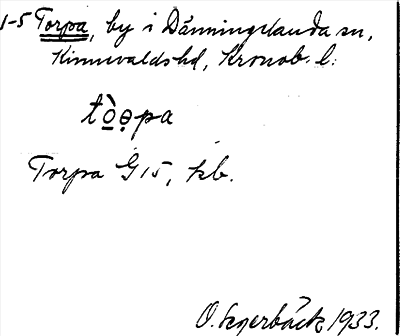 1-5 Torpa, by i Dänningelanda sn,
Kinnevaldshd, Kronob. l:
tò̱ə̣pa
Torpa G 15, kb.
O. Segerbäck 1933.